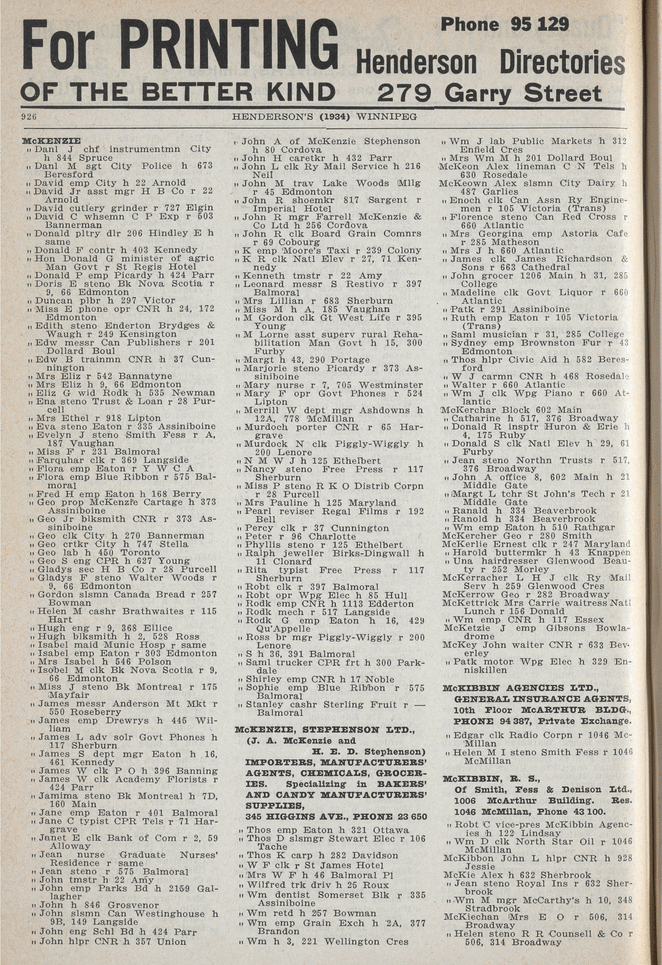 For PRINTING
OF THE BETTER KIND
Phone 95 129
Henderson Directories
279 Garry Street
926
HENDERSON'S (1934) WINNIPEG
McKENZIE
" Danl J chf instrumentmn City
h 844 Spruce
" Danl M sgt City Police h 673
Beresford
" David emp City h 22 Arnold
" David Jr asst mgr H B Co r 22
Arnold
" David cutlery grinder r 727 Elgin
" David C whsemn C P Exp r 503
Bannerman
" Donald pltry dlr 206 Hindley E h
same
" Donald F contr h 403 Kennedy
" Hon Donald G minister of agric
Man Govt r St Regis Hotel
" Donald P emp Picardy h 424 Parr
" Doris E steno Bk Nova Scotia r
9, 66 Edmonton
" Duncan plbr h 297 Victor
" Miss E phone opr CNR h 24, 172
Edmonton
" Edith steno Enderton Brydges &
Waugh r 249 Kensington
" Edw messr Can Publishers r 201
Dollard Boul
" Edw B trainmn CNR h 37 Cun-
nington
" Mrs Eliz r 542 Bannatyne
" Mrs Eliz h 9, 66 Edmonton
" Eliz G wid Rodk h 535 Newman
" Ena steno Trust & Loan r 28 Pur-
cell
" Mrs Ethel r 918 Lipton
" Eva steno Eaton r 335 Assiniboine
" Evelyn J steno Smith Fess r A,
187 Vaughan
" Miss F r 231 Balmoral
" Farquhar clk r 369 Langside
" Flora emp Eaton r Y W C A
" Flora emp Blue Ribbon r 575 Bal-
moral
" Fred H emp Eaton h 168 Berry
" Geo prop McKenzie Cartage h 373
Assiniboine
" Geo Jr blksmith CNR r 373 As-
siniboine
" Geo clk City h 270 Bannerman
" Geo crtkr City h 747 Stella
" Geo lab h 450 Toronto
" Geo S eng CPR h 627 Young
" Gladys sec H B Co r 28 Purcell
" Gladys F steno Walter Woods r
9, 66 Edmonton
" Gordon slsmn Canada Bread r 257
Bowman
" Helen M cashr Brathwaites r 115
Hart
" Hugh eng r 9, 368 Ellice
" Hugh blksmith h 2, 528 Ross
" Isabel maid Munic Hosp r same
" Isabel emp Eaton r 303 Edmonton
" Mrs Isabel h 546 Polson
" Isobel M clk Bk Nova Scotia r 9,
66 Edmonton
" Miss J steno Bk Montreal r 175
Mayfair
" James messr Anderson Mt Mkt r
550 Roseberry
" James emp Drewrys h 445 Wil-
liam
" James L adv solr Govt Phones h
117 Sherburn
" James S dept mgr Eaton h 16,
461 Kennedy
" James W clk P O h 396 Banning
" James W clk Academy Florists r
424 Parr
" Jamima steno Bk Montreal h 7D,
160 Main
" Jane emp Eaton r 401 Balmoral
" Jane C typist CPR Tels r 71 Har-
grave
" Janet E clk Bank of Com r 2, 59
Alloway
" Jean nurse Graduate Nurses'
Residence r same
" Jean steno r 575 Balmoral
" John tmstr h 22 Amy
" John emp Parks Bd h 2159 Gal-
lagher
" John h 846 Grosvenor
" John slsmn Can Westinghouse h
9B, 149 Langside
" John eng Schl Bd h 424 Parr
" John hlpr CNR h 357 Union
" John A of McKenzie Stephenson
h 80 Cordova
" John H caretkr h 432 Parr
" John L clk Ry Mail Service h 216
Neil
" John M trav Lake Woods Millg
r 45 Edmonton
" John R shoemkr 817 Sargent r
Imperial Hotel
" John R mgr Farrell McKenzie &
Co Ltd h 256 Cordova
" John R clk Board Grain Comnrs
r 69 Cobourg
" K emp Moore's Taxi r 239 Colony
" K R clk Natl Elev r 27, 71 Ken-
nedy
" Kenneth tmstr r 22 Amy
" Leonard messr S Restivo r 397
Balmoral
" Mrs Lillian r 683 Sherburn
" Miss M h A, 185 Vaughan
" M Gordon clk Gt West Life r 395
Young
" M Lorne asst superv rural Reha-
bilitation Man Govt h 15, 300
Furby
" Margt h 43, 290 Portage
" Marjorie steno Picardy r 373 As-
siniboine
" Mary nurse r 7, 705 Westminster
" Mary F opr Govt Phones r 524
Lipton
" Merrill W dept mgr Ashdowns h
12A, 778 McMillan
" Murdoch porter CNR r 65 Har-
grave
" Murdock N clk Piggly-Wiggly h
200 Lenore
" N M W J h 125 Ethelbert
" Nancy steno Free Press r 117
Sherburn
" Miss P steno R K O Distrib Corpn
r 28 Purcell
" Mrs Pauline h 125 Maryland
" Pearl reviser Regal Films r 192
Bell
" Percy clk r 37 Cunnington
" Peter r 96 Charlotte
" Phyllis steno r 125 Ethelbert
" Ralph jeweller Birks-Dingwall h
11 Clonard
" Rita typist Free Press r 117
Sherburn
" Robt clk r 397 Balmoral
" Robt opr Wpg Elec h 85 Hull
" Rodk emp CNR h 1113 Edderton
" Rodk mech r 517 Langside
" Rodk G emp Eaton h 16, 429
Qu'Appelle
" Ross br mgr Piggly-Wiggly r 200
Lenore
" S h 36, 391 Balmoral
" Saml trucker CPR frt h 300 Park-
dale
" Shirley emp CNR h 17 Noble
" Sophie emp Blue Ribbon r 575
Balmoral
" Stanley cashr Sterling Fruit r —
Balmoral
McKENZIE, STEPHENSON LTD.,
(J. A. McKenzie and
H. E. D. Stephenson)
IMPORTERS, MANUFACTURERS'
AGENTS, CHEMICALS, GROCER-
IES. Specializing in BAKERS'
AND CANDY MANUFACTURERS'
SUPPLIES,
345 HIGGINS AVE., PHONE 23 650
" Thos emp Eaton h 321 Ottawa
" Thos D slsmgr Stewart Elec r 106
Tache
" Thos K carp h 282 Davidson
" W F clk r St James Hotel
" Mrs W F h 46 Balmoral Pl
" Wilfred trk driv h 25 Roux
" Wm dentist Somerset Blk r 335
Assiniboine
" Wm retd h 257 Bowman
" Wm emp Grain Exch h 2A, 377
Brandon
" Wm h 3, 221 Wellington Cres
" Wm J lab Public Markets h 312
Enfield Cres
" Mrs Wm M h 201 Dollard Boul
McKeon Alex lineman C N Tels h
630 Rosedale
McKeown Alex slsmn City Dairy h
487 Garlies
" Enoch clk Can Assn Ry Engine-
men r 105 Victoria (Trans)
" Florence steno Can Red Cross r
660 Atlantic
" Mrs Georgina emp Astoria Cafe
r 285 Matheson
" Mrs J h 660 Atlantic
" James clk James Richardson &
Sons r 663 Cathedral
" John grocer 1206 Main h 31, 285
College
" Madeline clk Govt Liquor r 660
Atlantic
" Patk r 291 Assiniboine
" Ruth emp Eaton r 105 Victoria
(Trans)
" Saml musician r 31, 285 College
" Sydney emp Brownston Fur r 43
Edmonton
" Thos hlpr Civic Aid h 582 Beres-
ford
" W J carmn CNR h 468 Rosedale
" Walter r 660 Atlantic
" Wm J clk Wpg Piano r 660 At-
lantic
McKerchar Block 602 Main
" Catharine h 517, 376 Broadway
" Donald R insptr Huron & Erie h
4, 175 Ruby
" Donald S clk Natl Elev h 29, 61
Furby
" Jean steno Northn Trusts r 517,
376 Broadway
" John A office 8, 602 Main h 21
Middle Gate
" Margt L tchr St John's Tech r 21
Middle Gate
" Ranald h 334 Beaverbrook
" Ranold h 334 Beaverbrook
" Wm emp Eaton h 510 Rathgar
McKercher Geo r 280 Smith
McKerlie Ernest clk r 247 Maryland
" Harold buttermkr h 43 Knappen
" Una hairdresser Glenwood Beau-
ty r 252 Morley
McKerracher L H J clk Ry Mail
Serv h 259 Glenwood Cres
McKerrow Geo r 282 Broadway
McKettrick Mrs Carrie waitress Natl
Lunch r 156 Donald
" Wm emp CNR h 117 Essex
McKetzie J emp Gibsons Bowla-
drome
McKey John waiter CNR r 633 Bev-
erley
" Patk motor Wpg Elec h 329 En-
niskillen
McKIBBIN AGENCIES LTD.,
GENERAL INSURANCE AGENTS,
10th Floor McARTHUR BLDG.,
PHONE 94 387, Private Exchange.
" Edgar clk Radio Corpn r 1046 Mc-
Millan
" Helen M I steno Smith Fess r 1046
McMillan
McKIBBIN, R. S.,
Of Smith, Fess & Denison Ltd.,
1006 McArthur Building. Res.
1046 McMillan, Phone 43 100.
" Robt C vice-pres McKibbin Agenc-
ies h 122 Lindsay
" Wm D clk North Star Oil r 1046
McMillan
McKibbon John L hlpr CNR h 928
Jessie
McKie Alex h 632 Sherbrook
" Jean steno Royal Ins r 632 Sher-
brook
" Wm M mgr McCarthy's h 10, 348
Stradbrook
McKiechan Mrs E O r 506, 314
Broadway
" Helen steno R R Counsell & Co r
506, 314 Broadway